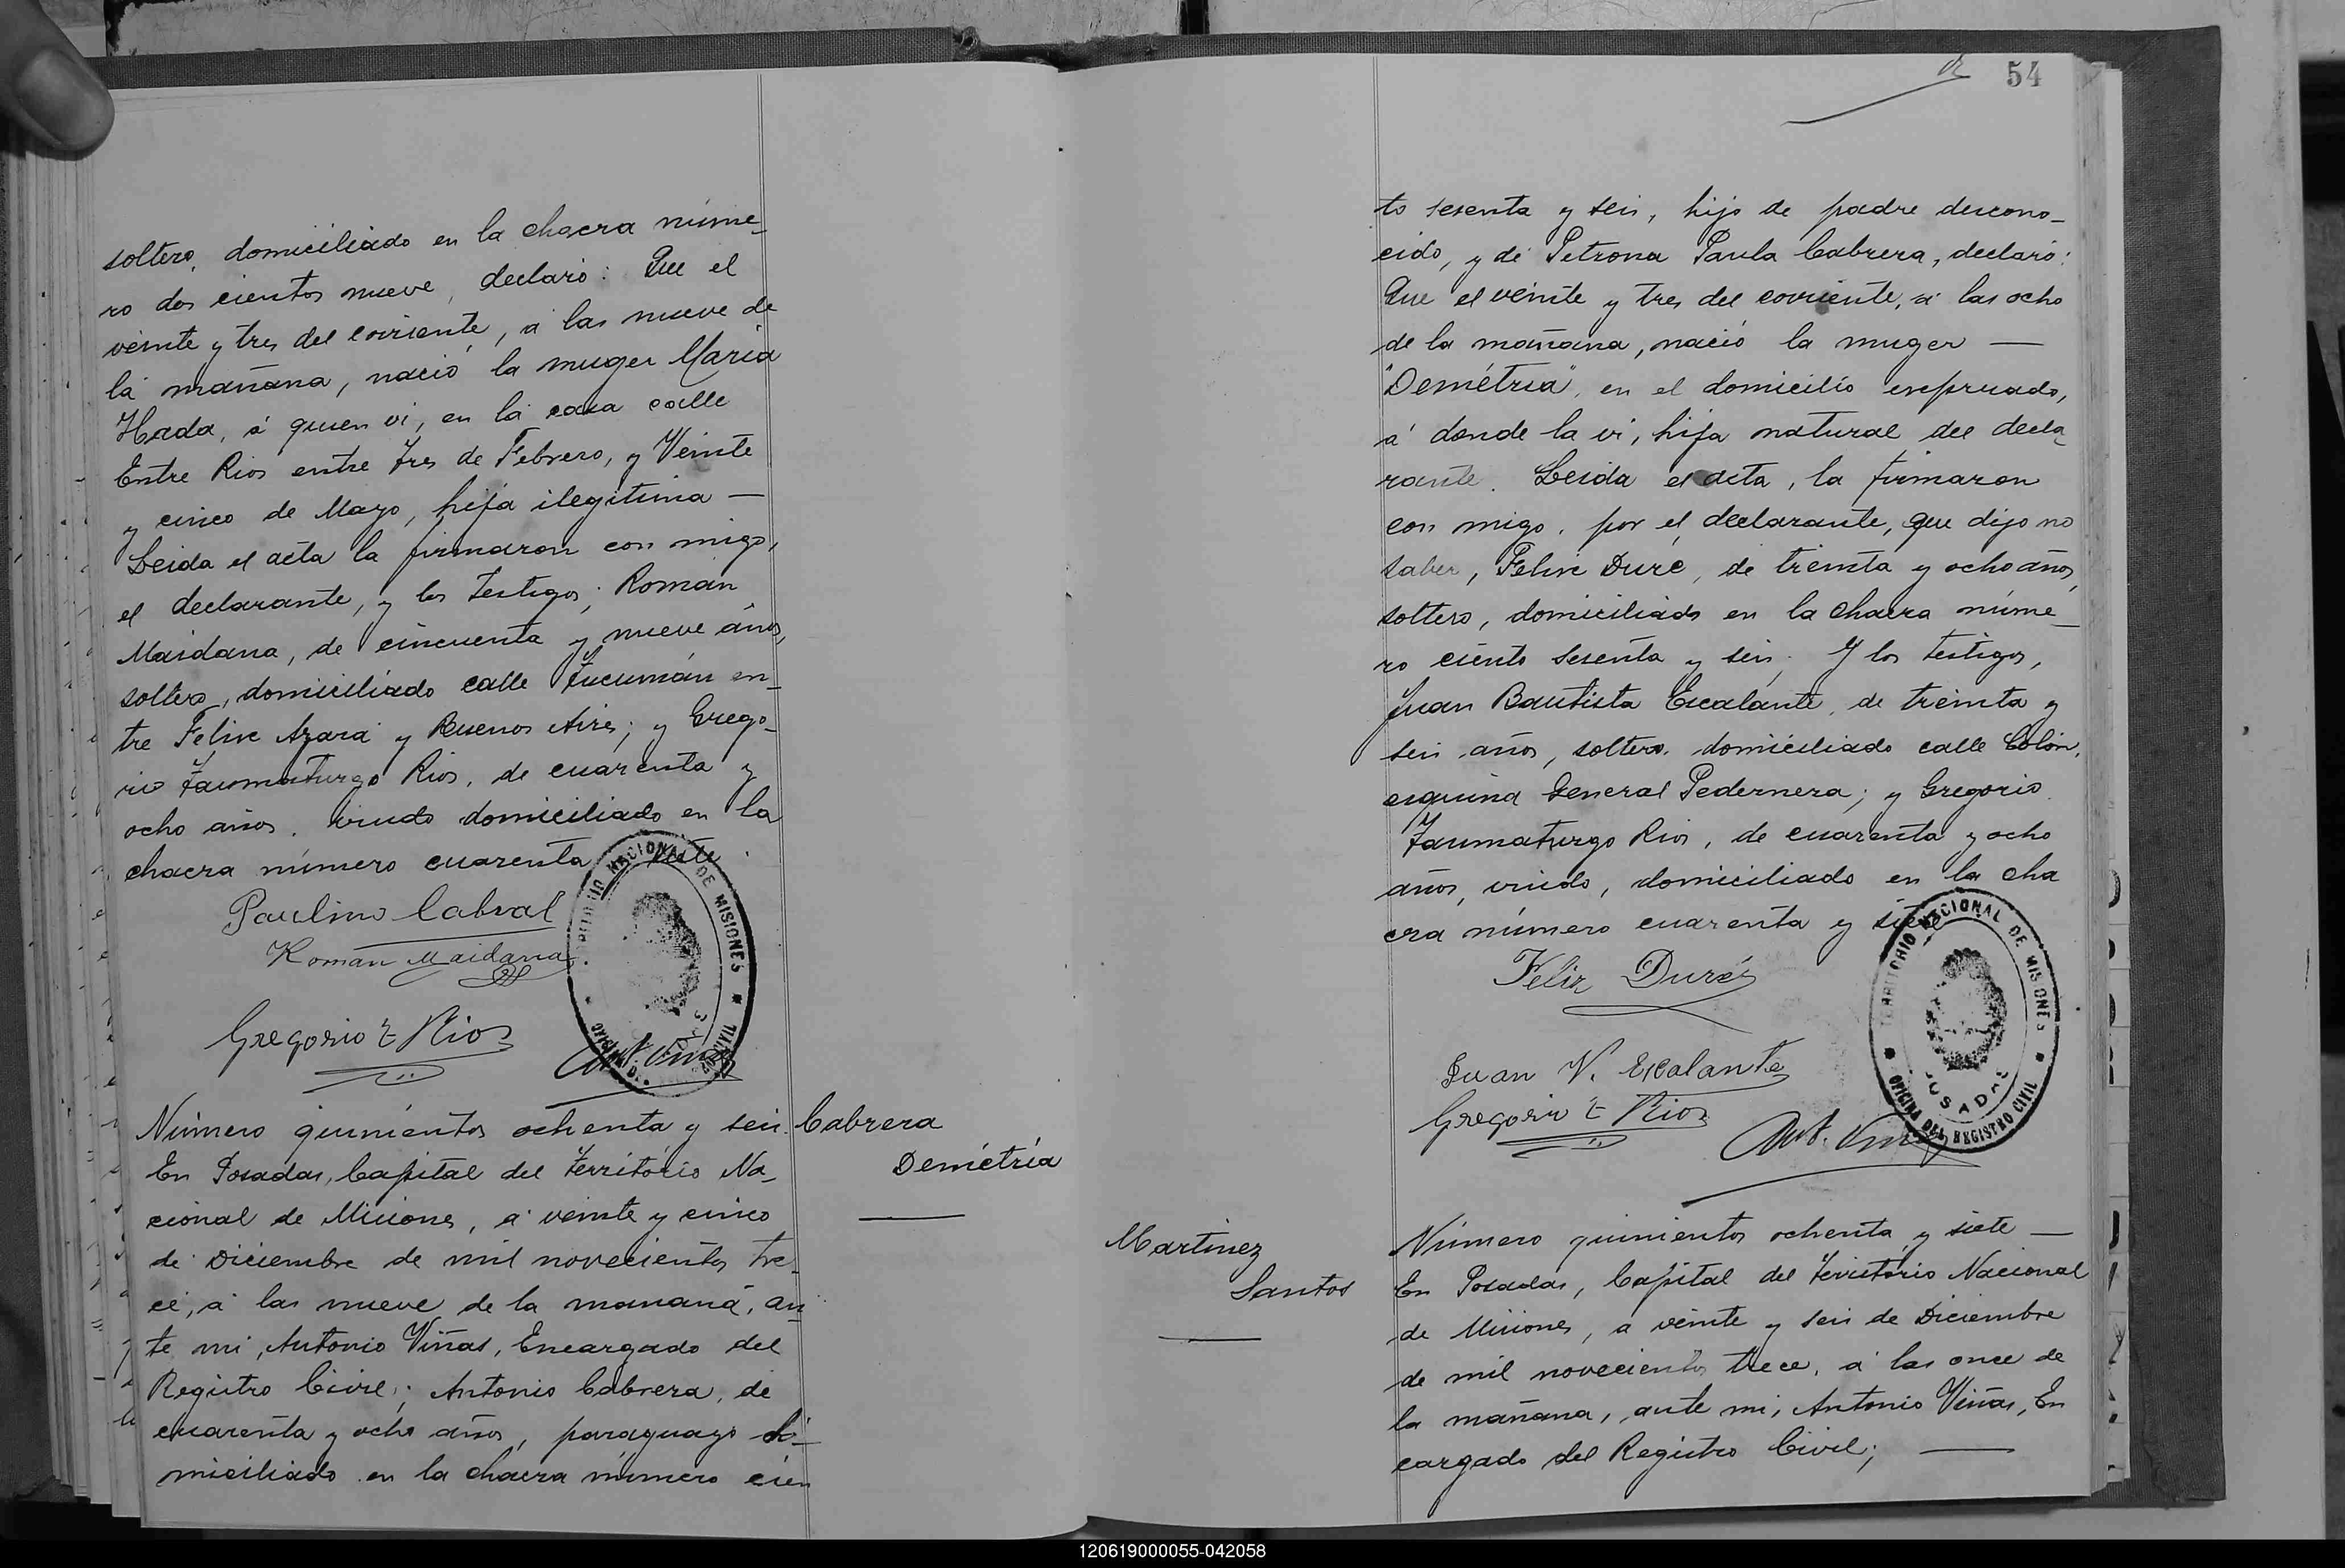 soltero, domiciliado en la chacra núme-
ro dos cientos nueve, declaró: Que el
veinte y tres del corriente, á las nueve de
la mañana, nació la muger María
Hada, á quien vi, en la casa calle
Entre Rios entre Tres de Febrero, y Veinte
y cinco de Mayo, hija ilegitima —
Leida el acta la firmaron con migo,
el declarante, y los testigos; Román
Maidana, de cincuenta y nueve años,
soltero, domiciliado calle Tucumán en-
tre Felix Azara y Buenos Aires; y Grego-
rio Taumaturgo Rios, de cuarenta y
ocho años, viudo domiciliado en la
chacra número cuarenta y siete.
Paulino Cabral
Roman Maidana
Gregorio T Rios
Ant. Viñas
TERRITORIO NACIONAL DE MISIONES
Número quinientos ochenta y seis.
Cabrera
Demétria
En Posadas, Capital del Território Na-
cional de Misiones, á veinte y cinco
de Diciembre de mil novecientos tre-
ce, á las nueve de la mañana, an-
te mi, Antonio Viñas, Encargado del
Registro Civil; Antonio Cabrera, de
cuarenta y ocho años, paraguayo do-
miciliado en la chacra número cien
54
to sesenta y seis, hijo de padre descono-
cido, y de Petrona Paula Cabrera, declaró:
Que el veinte y tres del corriente, á las ocho
de la mañana, nació la muger —
"Demétria", en el domicilio expresado,
á donde la vi, hija natural del decla-
rante. Leida el acta, la firmaron
con migo, por el declarante, que dijo no
saber, Felix Duré, de treinta y ocho años,
soltero, domiciliado en la chacra núme-
ro ciento sesenta y seis; Y los testigos,
Juan Bautista Escalante, de treinta y
seis años, soltero, domiciliado calle Colón,
esquina General Pedernera; y Gregorio
Taumaturgo Rios, de cuarenta y ocho
años, viudo, domiciliado en la cha
cra número cuarenta y siete
Felix Duré
Juan V. Escalante
Gregorio T Rios
Ant. Viñas
TERRITORIO NACIONAL DE MISIONES
POSADAS
OFICINA DEL REGISTRO CIVIL
Martinez
Santos
Número quinientos ochenta y siete —
En Posadas, Capital del Território Nacional
de Misiones, a veinte y seis de Diciembre
de mil novecientos trece, á las once de
la mañana, ante mi, Antonio Viñas, En
cargado del Registro Civil; —
120619000055-042058